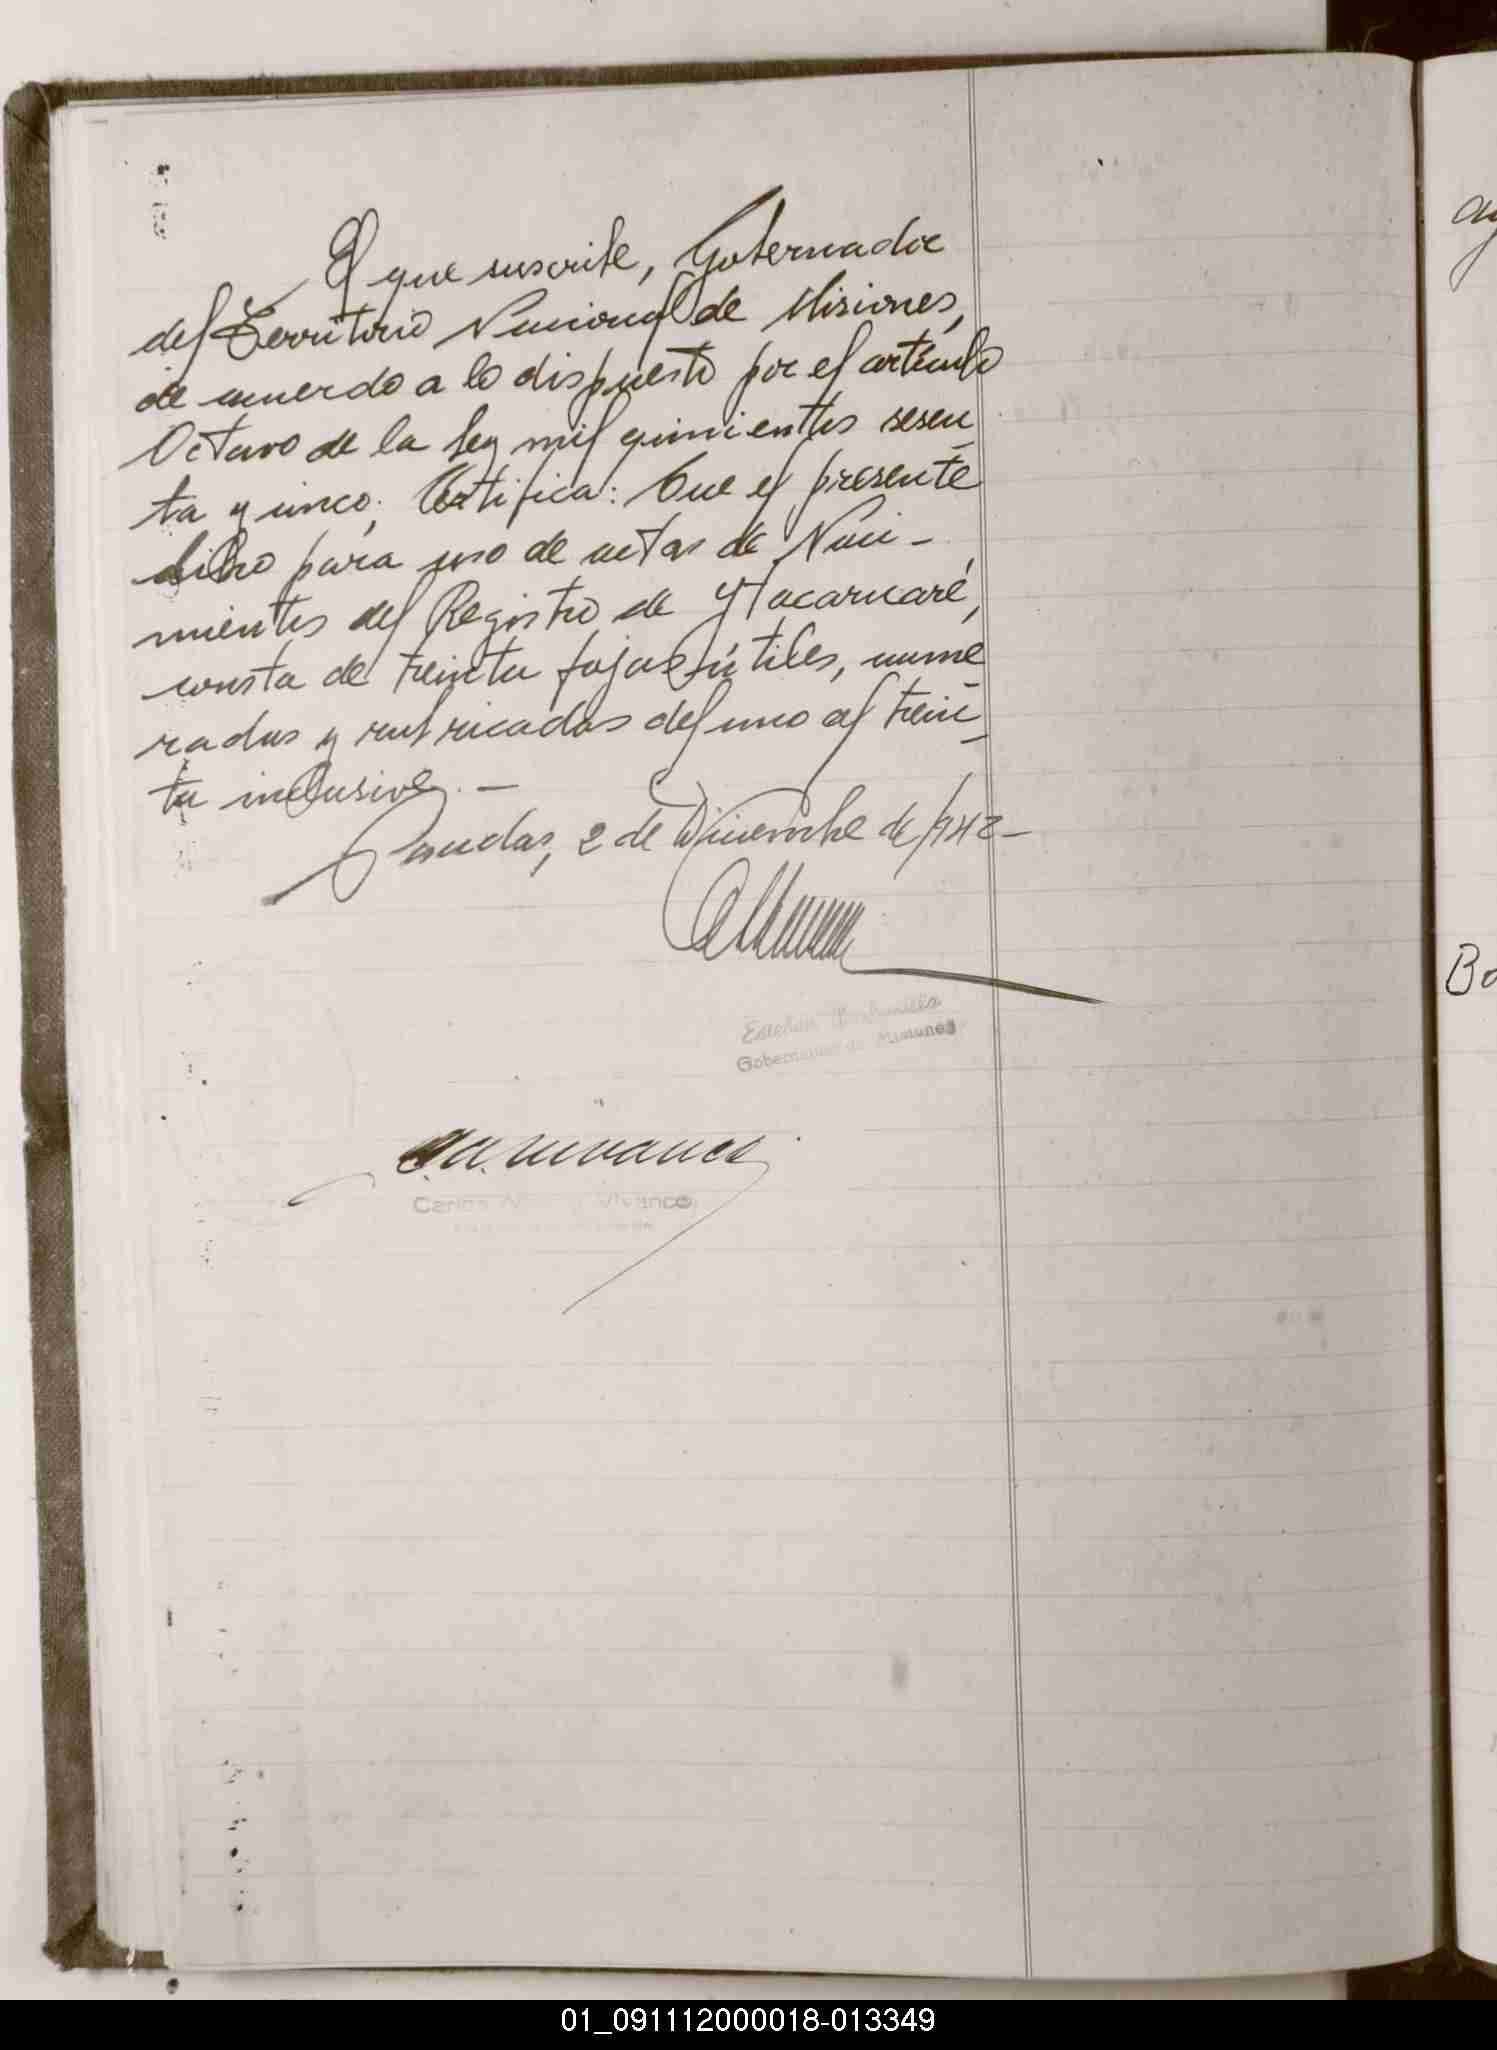 El que suscribe, Gobernador
del Territorio Nacional de Misiones,
de acuerdo a lo dispuesto por el artículo
Octavo de la Ley mil quinientos sesen
ta y cinco; Certifica: Que el presente
libro para uso de actas de Naci-
mientos del Registro de Ytacaruaré,
consta de treinta fojas útiles, nume
radas y rubricadas del uno al trein
ta inclusive. -
Posadas, 2 de Diciembre de 1942-
Gobernador de Misiones
Carlos Vivanco
01_091112000018-013349